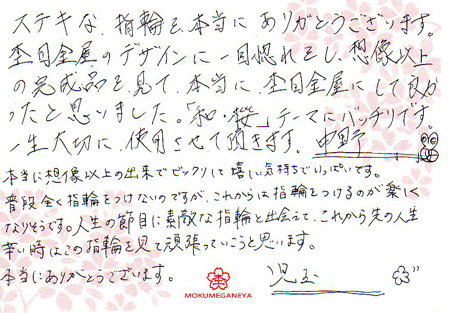 ステキな、指輪を、本当にありがとうございます。
杢目金屋のデザインに一目惚れをし、想像以上
の完成品を見て、本当に、杢目金屋にして良か
ったと思いました。「和・桜」テーマにバッチリです。
一生大切に、使用させて頂きます。 中里予
本当に想像以上の出来でビックリして嬉しい気持ちでいっぱいです。
普段全く指輪をつけないのですが、これからは指輪をつけるのが楽しく
なりそうです。人生の節目に素敵な指輪と出会えて、これから先の人生
辛い時はこの指輪を見て頑張っていこうと思います。
本当にありがとうございます。 児玉
MOKUMEGANEYA